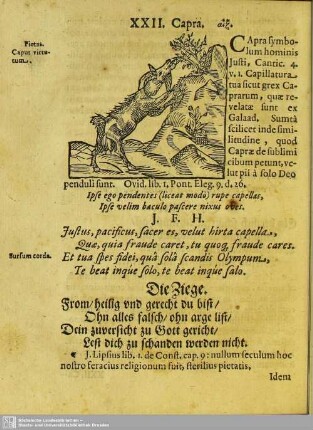 XXII. Capra. αἴξ.
Pietas.
Caput virtu-
tum.
CApra symbo-
lum hominis
Justi, Cantic. 4.
v. 1. Capillatura
tua sicut grex Ca-
prarum, quæ re-
velatæ sunt ex
Galaad. Sumtâ
scilicet inde simi-
litudine, quod
Capræ de sublimi
cibum petunt, ve-
lut pii â solo Deo
penduli sunt. Ovid. lib. 1. Pont. Eleg. 9. d. 26.
Ipse ego pendentes (liceat modò) rupe capellas,
Ipse velim baculo pascere nixus oves.
J. F. H.
Justus, pacificus, sacer es, velut hirta capella,
Quæ, quia fraude caret, tu quoq; fraude cares.
Sursum corda.
Et tua spes fidei, quâ solâ scandis Olympum,
Te beat inque solo, te beat inque salo.
Die Ziege.
From/ heilig vnd gerecht du bist/
Ohn alles falsch/ ohn arge list/
Dein zuversicht zu Gott gericht/
Lest dich zu schanden werden nicht.
J. Lipsius lib. 1. de Const. cap. 9: nullum seculum hoc
nostro feracius religionum fuit, sterilius pietatis,
Idem